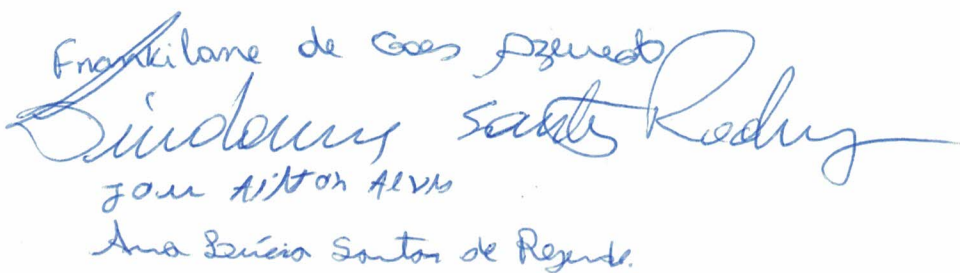 Frankilane de Goes Azevedo
Santos Rodrig
Ailton Alves
Ana Lúcia Santos de Rezende.